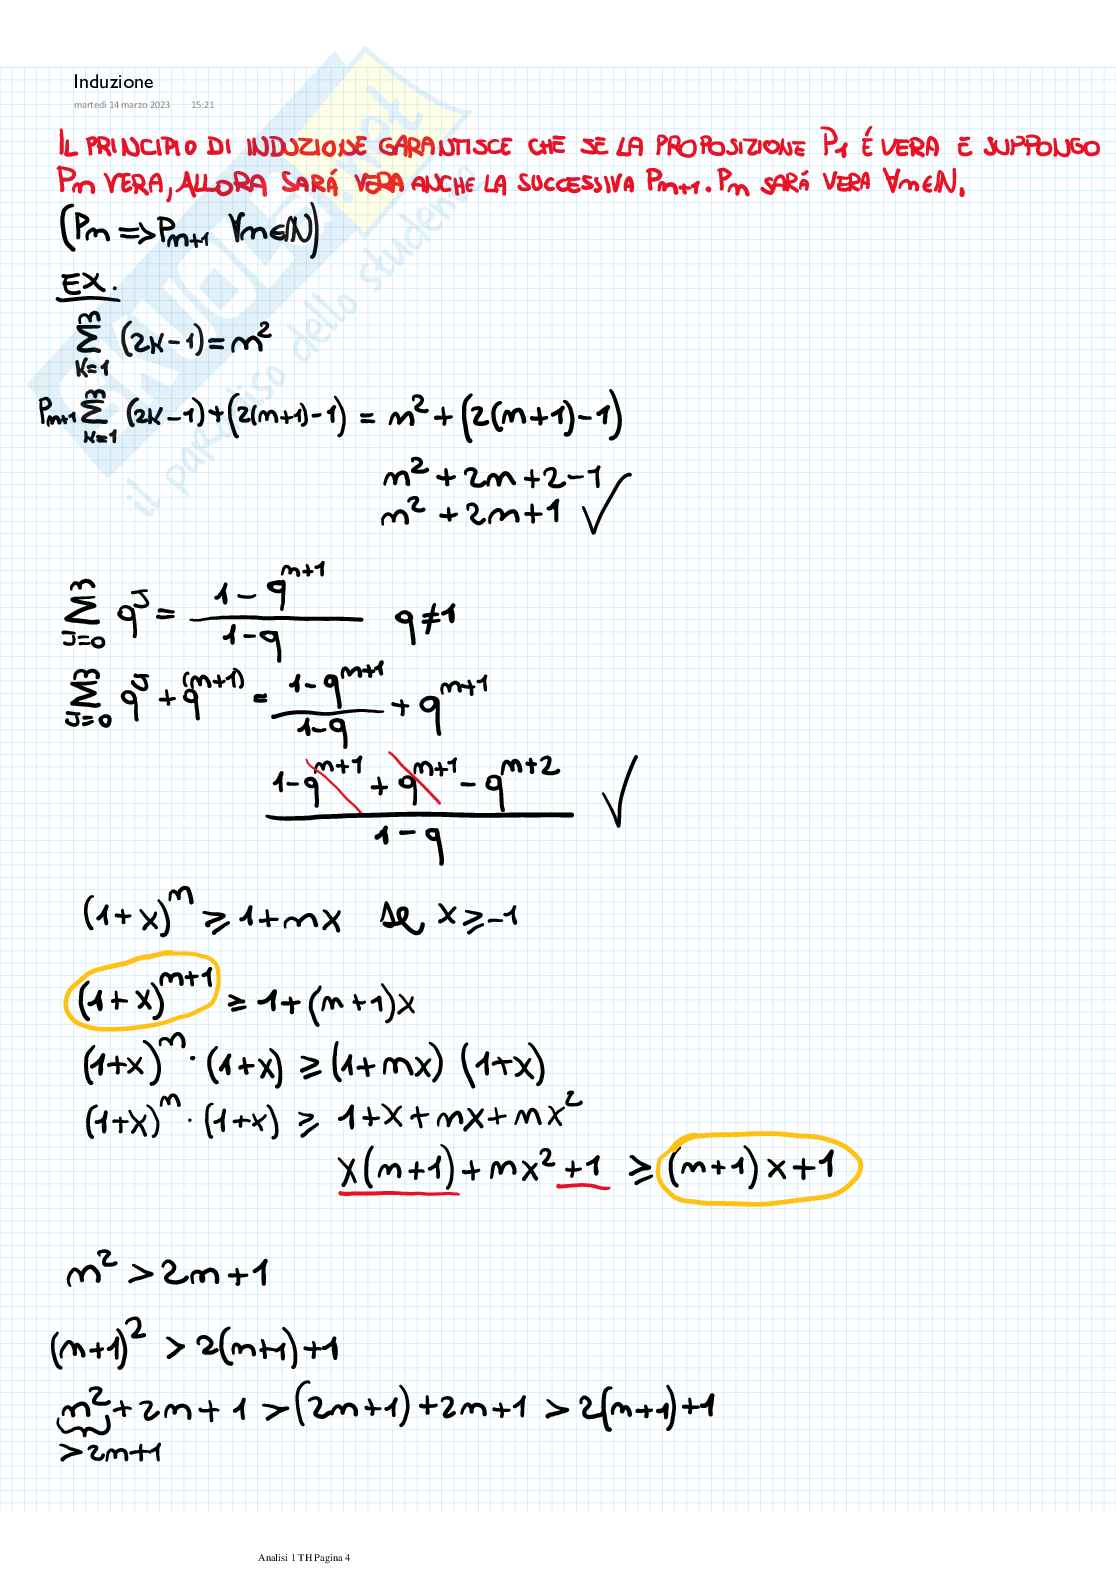 Induzione
martedì 14 marzo 2023 15:21
IL PRINCIPIO DI INDUZIONE GARANTISCE CHE SE LA PROPOSIZIONE P1 É VERA E SUPPONGO
Pm VERA, ALLORA SARÁ VERA ANCHE LA SUCCESSIVA Pm+1. Pm SARÁ VERA ∀m∈N.
(Pm => Pm+1 ∀m∈N)
EX.
∑_{K=1}^{m} (2K-1) = m²
Pm+1 ∑_{K=1}^{m} (2K-1) + (2(m+1)-1) = m² + (2(m+1)-1)
m² + 2m + 2 - 1
m² + 2m + 1 ✓
∑_{J=0}^{m} q^J = (1 - q^{m+1}) / (1 - q) q ≠ 1
∑_{J=0}^{m} q^J + q^{(m+1)} = (1 - q^{m+1}) / (1 - q) + q^{m+1}
(1 - q^{m+1} + q^{m+1} - q^{m+2}) / (1 - q) ✓
(1+x)^m ≥ 1+mx se x ≥ -1
(1+x)^{m+1} ≥ 1+(m+1)x
(1+x)^m · (1+x) ≥ (1+mx) (1+x)
(1+x)^m · (1+x) ≥ 1+x+mx+mx²
x(m+1) + mx² + 1 ≥ (m+1)x+1
m² > 2m+1
(m+1)² > 2(m+1)+1
m² + 2m + 1 > (2m+1) + 2m+1 > 2(m+1)+1
> 2m+1
SKUOLA.net
il paradiso dello studente
Analisi 1 TH Pagina 4